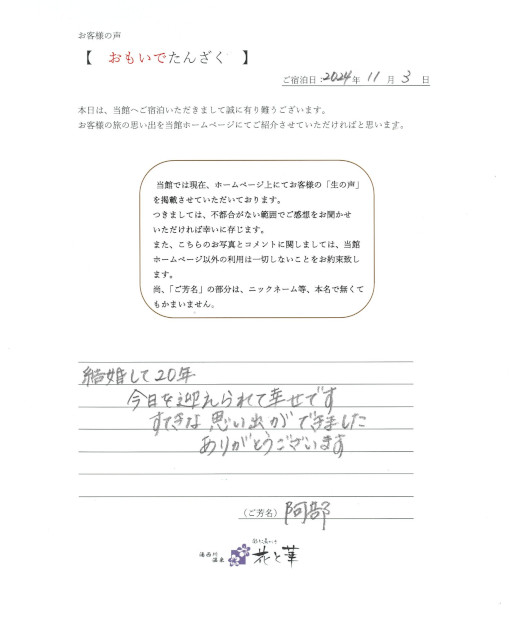 お客様の声
【 おもいでたんざく 】
ご宿泊日:2024年 11月 3日
本日は、当館へご宿泊いただきまして誠に有り難うございます。
お客様の旅の思い出を当館ホームページにてご紹介させていただければと思います。
当館では現在、ホームページ上にてお客様の「生の声」
を掲載させていただいております。
つきましては、不都合がない範囲でご感想をお聞かせ
いただければ幸いに存じます。
また、こちらのお写真とコメントに関しましては、当館
ホームページ以外の利用は一切しないことをお約束致し
ます。
尚、「ご芳名」の部分は、ニックネーム等、本名で無くて
もかまいません。
結婚して20年
今日を迎えられて幸せです
すてきな思い出ができました
ありがとうございます
(ご芳名) 阿部
湯西川
温泉
花と華